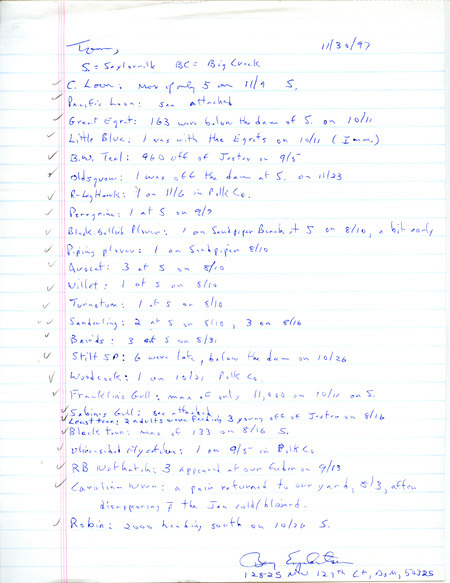 11/30/97
S. = Saylorville BC = Big Creek
C. Loon: Max of only 5 on 11/9 S.
Pacific Loon: see attached
Great Egret: 163 were below the dam of S. on 10/11
Little Blue: 1 was with the Egrets on 10/11 (Imm.)
B.W. Teal: 460 off of Jester on 9/5
Oldsquaw: 1 was off the dam at S. on 11/23
R-leg Hawk: 1 on 11/6 in Polk Co.
Peregrine: 1 at S on 9/7
Black-bellied Plover: 1 on Sandpiper Beach at S on 8/10, a bit early
Piping plover: 1 on Sandpiper 8/10
Avocet: 3 at S on 8/10
Willet: 1 at S on 8/10
Turnstone: 1 at S on 8/10
Sanderling: 2 at S on 8/10, 3 on 8/16
Bairds: 3 at S on 8/31
Stilt SP: 6 were late, below the dam on 10/26
Woodcock: 1 on 10/21 Polk Co.
Franklin's Gull: max of only 11,000 on 10/11 on S.
Sabine's Gull: see attached
Least tern: 2 adults were feeding 3 young off of Jester on 8/16
Black tern: max of 133 on 8/16 S.
Olive-sided flycatcher: 1 on 9/5 in Polk Co
RB Nuthatch: 3 appeared at our feeder on 9/13
Carolina Wren: a pair returned to our yard, 8/3, after
disappearing p̄ the Jan cold/blizzard.
Robin: 2000 heading south on 10/26 S.
12825 NW 127th Ct, DsM, 50325